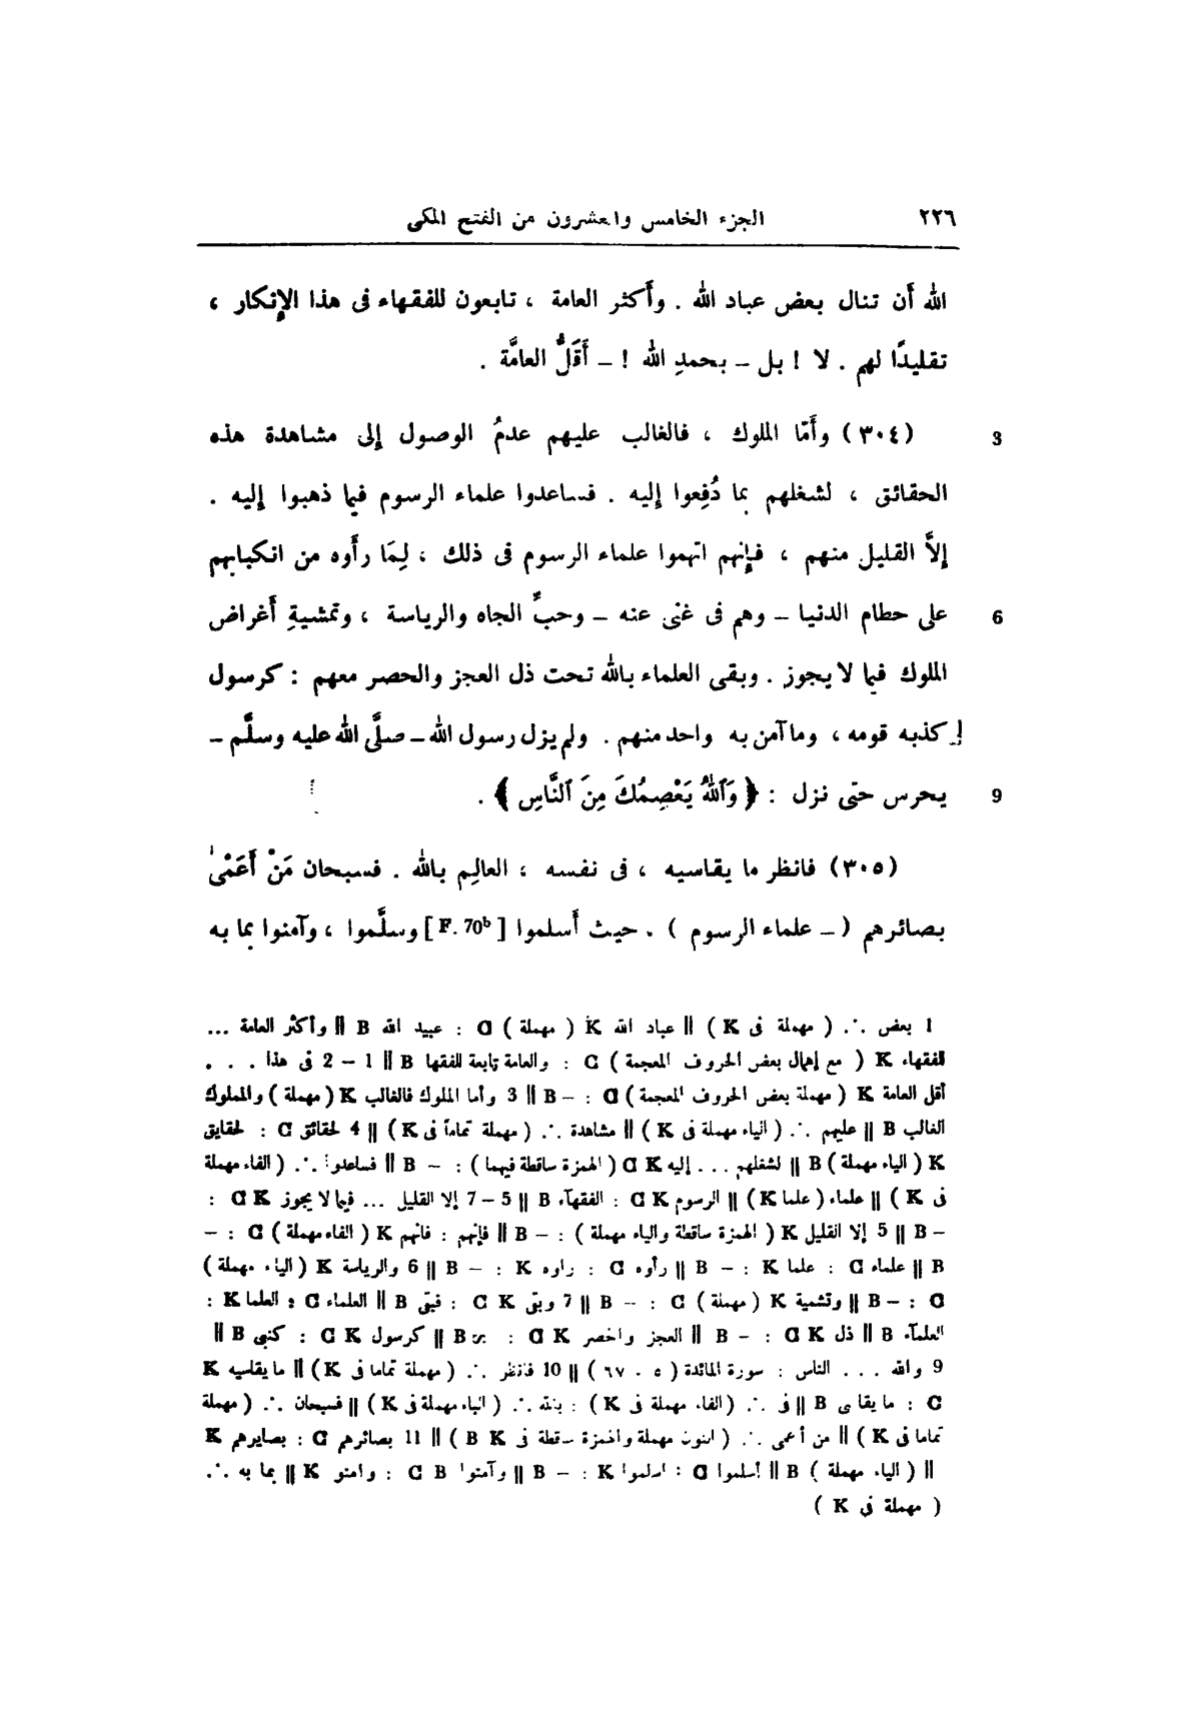 ٢٢٦ الجزء الخامس والعشرون من الفتح المكى
الله أن تنال بعض عباد الله . وأَكثر العامة ، تابعون للفقهاء فى هذا الإِنكار ،
تقليدًا لهم . لا ! بل – بحمدِ الله ! – أَقَلُّ العامَّة .
3 (٣٠٤) وأَمّا الملوك ، فالغالب عليهم عدمُ الوصول إلى مشاهدة هذه
الحقائق ، لشغلهم بما دُفِعوا إليه . فساعدوا علماء الرسوم فيما ذهبوا إليه .
إلاَّ القليل منهم ، فإنهم اتهموا علماء الرسوم فى ذلك ، لِمَا رأَوه من انكبابهم
6 على حطام الدنيا – وهم فى غنى عنه – وحبِّ الجاه والرياسة ، وتمشيةِ أَغراض
الملوك فيما لا يجوز . وبقى العلماء بالله تحت ذل العجز والحصر معهم : كرسول
كذبه قومه ، وما آمن به واحد منهم . ولم يزل رسول الله – صلَّى الله عليه وسلَّم –
9 يحرس حتى نزل : ﴿ وَٱللهُ يَعْصِمُكَ مِنَ ٱلنَّاسِ ﴾ .
(٣٠٥) فانظر ما يقاسيه ، فى نفسه ، العالِم بالله . فسبحان مَنْ أَعْمَىٰ
بصائرهم ( – علماء الرسوم ) . حيث أَسلموا [ F. 70b ] وسلَّموا ، وآمنوا بما به
1 بعض ∴ ( مهملة فى K ) || عباد الله K ( مهملة ) C : عبيد الله B || وأكثر العامة ...
للفقهاء K ( مع إهمال بعض الحروف المعجمة ) C : والعامة تابعة للفقها B || 1 – 2 فى هذا . . .
أقل العامة K ( مهملة بعض الحروف المعجمة ) C : – B || 3 وأما الملوك فالغالب K ( مهملة ) والملوك
الغالب B || عليهم ∴ ( الياء مهملة فى K ) || مشاهدة ∴ ( مهملة تماماً فى K ) || 4 لحقائق C : لحقايق
K ( الياء مهملة ) B || لشغلهم . . . إليه C K ( الهمزة ساقطة فيهما ) : – B || فساعدوا ∴ ( الفاء مهملة
فى K ) || علماء ( علما K ) || الرسوم C K : الفقهآء B || 5 – 7 إلا القليل ... فيما لا يجوز C K :
– B || 5 إلا القليل K ( الهمزة ساقطة والياء مهملة ) : – B || فإنهم : فانهم K ( الفاء مهملة ) C : –
B || علماء C : علما K : – B || رأوه C : راوه K : – B || 6 والرياسة K ( الياء مهملة )
C : – B || وتمشية K ( مهملة ) C : – B || 7 وبقى C K : فبقى B || العلماء C : العلما K :
العلمآء B || ذل C K : – B || العجز والحصر C K : B || كرسول C K : كنبى B ||
9 والله . . . الناس : سورة المائدة ( ٥ . ٦٧ ) || 10 فانظر ∴ ( مهملة تماما فى K ) || ما يقاسيه K
C : ما يقاسى B || فى ∴ ( الفاء مهملة فى K ) : بالله ∴ ( الباء مهملة فى K ) || فسبحان ∴ ( مهملة
تماما فى K ) || من أعمى ∴ ( النون مهملة والهمزة ساقطة فى B K ) || 11 بصائرهم C : بصايرهم K
|| ( الياء مهملة ) B || أسلموا C : اسلموا K : – B || وآمنوا C B : وامنو K || بما به ∴
( مهملة فى K )